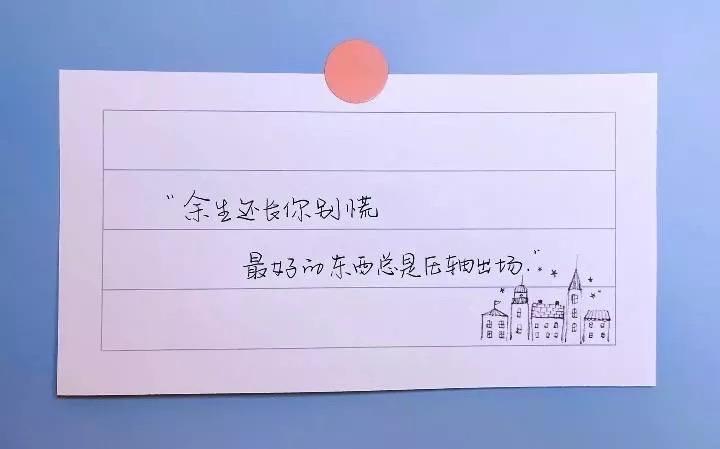 “余生还长你别慌
最好的东西总是压轴出场.”